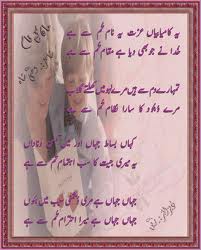 یہ کامیابیاں عزت یہ نام تم سے ہے
خدا نے جو بھی دیا ہے مقام تم سے ہے
تمہارے دم سے ہیں مرے لہو میں کھلتے گلاب
مرے وجود کا سارا نظام تم سے ہے
کہاں بساط جہاں اور میں کمسن و ناداں
یہ میری جیت کا سب اہتمام تم سے ہے
جہاں جہاں ہے مری دشمنی سبب میں ہوں
جہاں جہاں ہے میرا احترام تم سے ہے